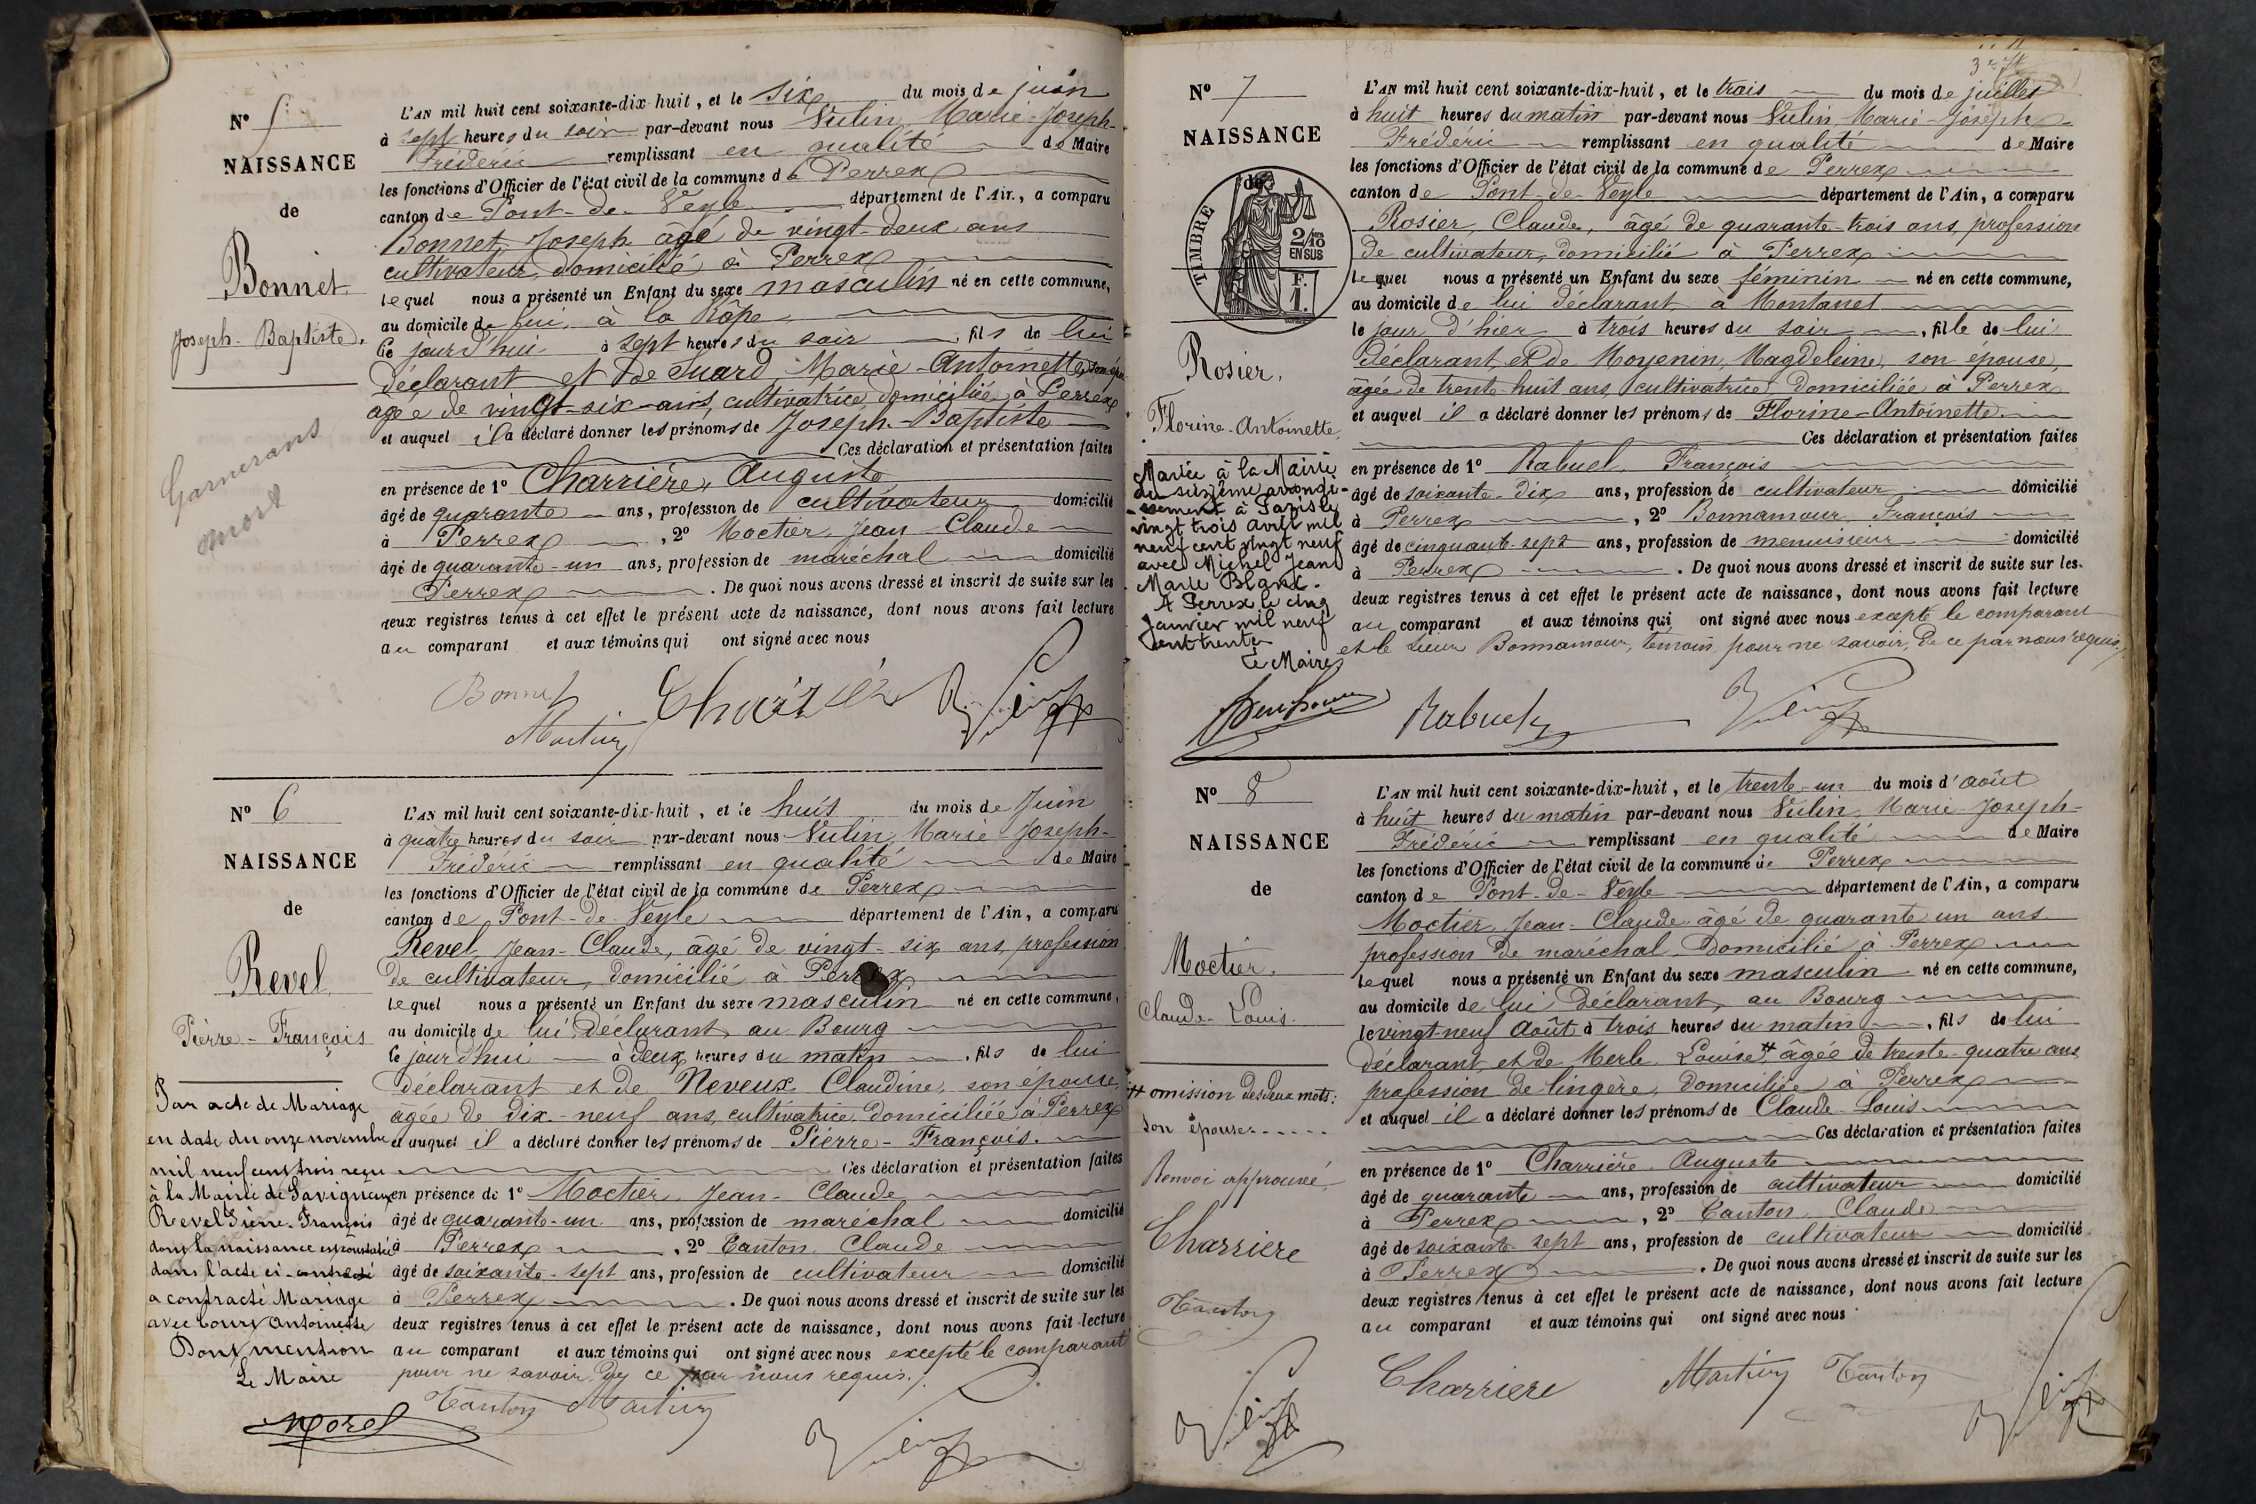 N° 5
NAISSANCE
de
Bonnet
Joseph-Baptiste.
Garnerans
mort
L'AN mil huit cent soixante-dix-huit, et le six du mois de juin
à sept heures du soir par-devant nous Vulin, Marie-Joseph-
Frédéric remplissant en qualité de Maire
les fonctions d'Officier de l'état civil de la commune de Perrex
canton de Pont-de-Veyle département de l'Ain, a comparu
Bonnet, Joseph âgé de vingt-deux ans
cultivateur, domicilié à Perrex
lequel nous a présenté un Enfant du sexe masculin né en cette commune,
au domicile de lui, à la Râpe
ce jourd'hui à sept heures du soir, fils de lui
déclarant et de Suard Marie-Antoinette, son épouse
âgée de vingt-six-ans, cultivatrice domiciliée à Perrex
et auquel il a déclaré donner les prénoms de Joseph-Baptiste
Ces déclaration et présentation faites
en présence de 1° Charrière, Auguste
âgé de quarante ans, profession de cultivateur domicilié
à Perrex, 2° Moctier, Jean-Claude
âgé de quarante-un ans, profession de maréchal domicilié
Perrex. De quoi nous avons dressé et inscrit de suite sur les
deux registres tenus à cet effet le présent acte de naissance, dont nous avons fait lecture
au comparant et aux témoins qui ont signé avec nous
Bonnet
N° 6
NAISSANCE
de
Revel
Pierre-François
Par acte de Mariage
en date du onze novembre
mil neuf cent trois reçu
à la Mairie de Savigneux
Revel Pierre-François
dont la naissance est constatée
dans l'acte ci-contre
a contracté Mariage
avec Antoinette
Dont mention
Le Maire
Morel
L'AN mil huit cent soixante-dix-huit, et le huit du mois de Juin
à quatre heures du soir par-devant nous Vulin, Marie Joseph-
Frédéric remplissant en qualité de Maire
les fonctions d'Officier de l'état civil de la commune de Perrex
canton de Pont-de-Veyle département de l'Ain, a comparu
Revel, Jean-Claude, âgé de vingt-six ans, profession
de cultivateur, domicilié à Perrex
lequel nous a présenté un Enfant du sexe masculin né en cette commune,
au domicile de lui déclarant, au Bourg
ce jourd'hui à deux heures du matin, fils de lui
déclarant et de Neveux Claudine, son épouse,
âgée de dix-neuf ans, cultivatrice, domiciliée à Perrex
et auquel il a déclaré donner les prénoms de Pierre-François.
Ces déclaration et présentation faites
en présence de 1° Moctier, Jean-Claude
âgé de quarante-un ans, profession de maréchal domicilié
à Perrex, 2° Tanton Claude
âgé de soixante-sept ans, profession de cultivateur domicilié
à Perrex. De quoi nous avons dressé et inscrit de suite sur les
deux registres tenus à cet effet le présent acte de naissance, dont nous avons fait lecture
au comparant et aux témoins qui ont signé avec nous excepté le comparant
pour ne savoir, de ce par nous requis.
Tanton
N° 7
NAISSANCE
de
TIMBRE
2/10
EN SUS
F.
1.
Rosier,
Florine-Antoinette
Mariée à la Mairie
du seizième arrondi-
-ssement à Paris le
vingt trois avril mil
neuf cent vingt neuf
avec Michel Jean
Marie Blanc.
A Perrex le cinq
janvier mil neuf
cent trente
Le Maire
L'AN mil huit cent soixante-dix-huit, et le trois du mois de juillet
à huit heures du matin par-devant nous Vulin, Marie-Joseph-
Frédéric remplissant en qualité de Maire
les fonctions d'Officier de l'état civil de la commune de Perrex
canton de Pont-de-Veyle département de l'Ain, a comparu
Rosier, Claude, âgé de quarante-trois ans, profession
de cultivateur, domicilié à Perrex
lequel nous a présenté un Enfant du sexe féminin né en cette commune,
au domicile de lui déclarant à Montanet
le jour d'hier à trois heures du soir, fille de lui
déclarant, et de Moyenin, Magdeleine, son épouse,
âgée de trente-huit ans, cultivatrice domiciliée à Perrex
et auquel il a déclaré donner les prénoms de Florine-Antoinette.
Ces déclaration et présentation faites
en présence de 1° Rabuel, François
âgé de soixante-dix ans, profession de cultivateur domicilié
à Perrex, 2° Bonnamour, François
âgé de cinquante-sept ans, profession de menuisier domicilié
à Perrex. De quoi nous avons dressé et inscrit de suite sur les
deux registres tenus à cet effet le présent acte de naissance, dont nous avons fait lecture
au comparant et aux témoins qui ont signé avec nous excepté le comparant
et le sieur Bonnamour, témoin, pour ne savoir, de ce par nous requis.
Rabuel
N° 8
NAISSANCE
de
Moctier.
Claude-Louis.
# omission des deux mots:
son épouse
Renvoi approuvé
Charriere
Tanton
L'AN mil huit cent soixante-dix-huit, et le trente-un du mois d'août
à huit heures du matin par-devant nous Vulin, Marie-Joseph-
Frédéric remplissant en qualité de Maire
les fonctions d'Officier de l'état civil de la commune de Perrex
canton de Pont-de-Veyle département de l'Ain, a comparu
Moctier, Jean-Claude âgé de quarante un ans
profession de maréchal domicilié à Perrex
lequel nous a présenté un Enfant du sexe masculin né en cette commune,
au domicile de lui déclarant, au Bourg
le vingt-neuf août à trois heures du matin, fils de lui
déclarant, et de Merle Louise # âgée de trente-quatre ans
profession de lingère, domiciliée à Perrex
et auquel il a déclaré donner les prénoms de Claude-Louis
Ces déclaration et présentation faites
en présence de 1° Charrière Auguste
âgé de quarante ans, profession de cultivateur domicilié
à Perrex, 2° Tanton, Claude
âgé de soixante-sept ans, profession de cultivateur domicilié
à Perrex. De quoi nous avons dressé et inscrit de suite sur les
deux registres tenus à cet effet le présent acte de naissance, dont nous avons fait lecture
au comparant et aux témoins qui ont signé avec nous
Charriere Tanton